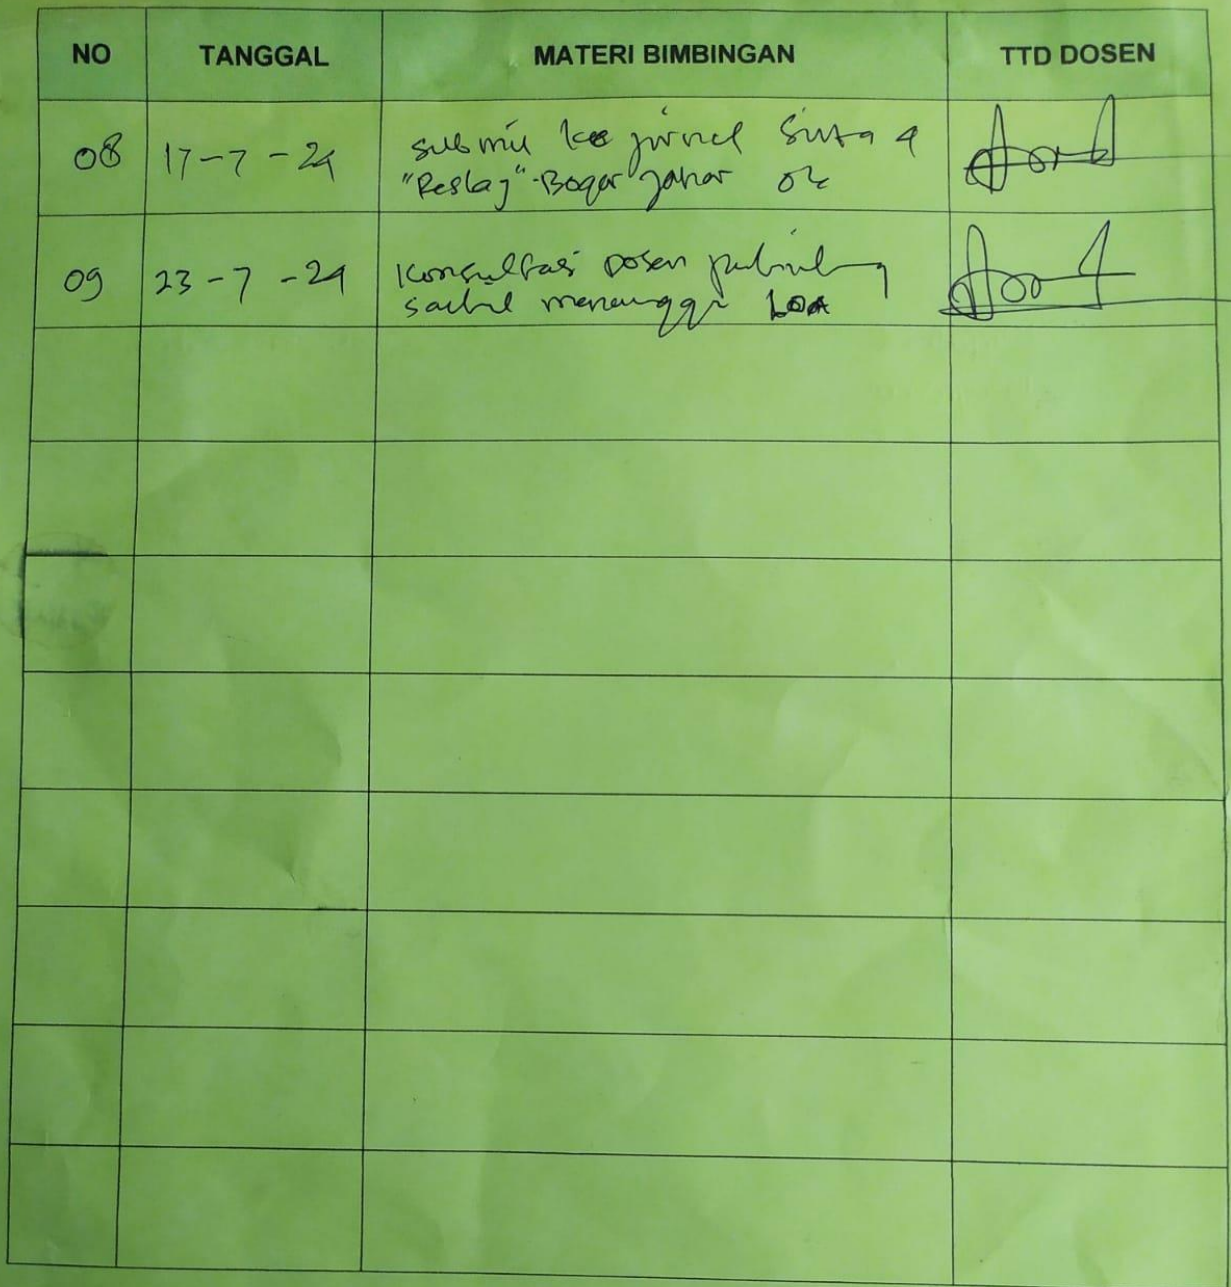 NO TANGGAL MATERI BIMBINGAN TTD DOSEN
08 17-7-24 submit ke jurnal Sinta 4
"Reslaj" - Bogor Jabar ok
09 23-7-24 Konsultasi Dosen
menunggu LOA